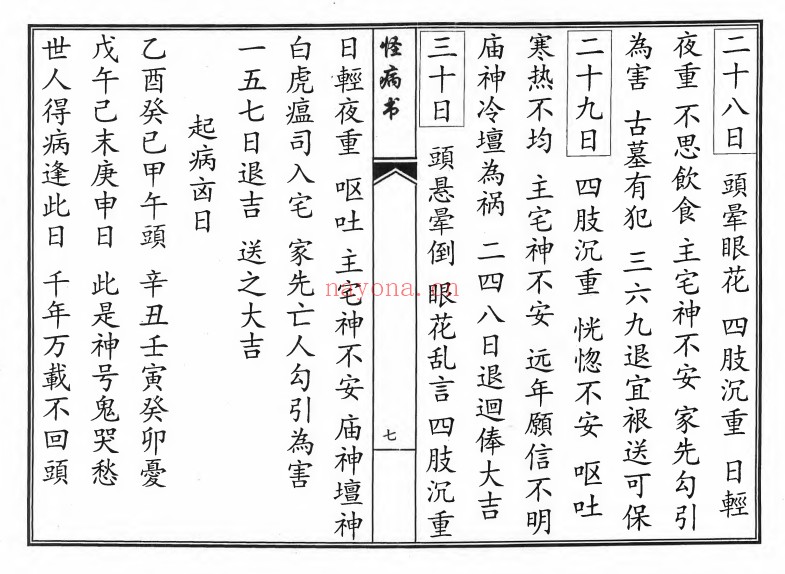 二十八日 頭暈眼花 四肢沉重 日輕
夜重 不思飲食 主宅神不安 家先勾引
為害 古墓有犯 三六九退宜裉送可保
二十九日 四肢沉重 恍惚不安 呕吐
寒热不均 主宅神不安 远年願信不明
庙神冷壇為祸 二四八日退迴俸大吉
三十日 頭悬晕倒 眼花乱言 四肢沉重
怪病书
七
日輕夜重 呕吐 主宅神不安 庙神壇神
白虎瘟司入宅 家先亡人勾引為害
一五七日退吉 送之大吉
起病凶日
乙酉癸巳甲午頭 辛丑壬寅癸卯憂
戊午己末庚申日 此是神号鬼哭愁
世人得病逢此日 千年万載不回頭
nayona.cn